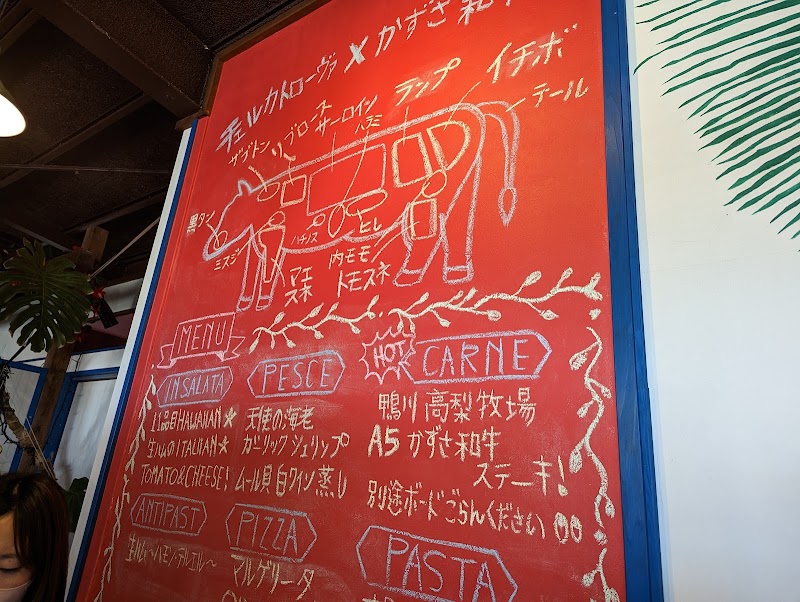 チェルカトローヴァ×かずさ和牛
ザブトン
リブロース
サーロイン
ハラミ
ランプ
イチボ
テール
黒タン
ミスジ
ハチノス
ヒレ
マエ
スネ
内モモ
トモスネ
MENU
INSALATA
11品目HAWAIIAN★
生ハムのITALIAN★
TOMATO&CHEESE!
PESCE
天使の海老
ガーリックシュリップ
ムール貝白ワイン蒸し
HOT
CARNE
鴨川高梨牧場
A5かずさ和牛
ステーキ!
別途ボードごらんください
ANTIPAST
生ハム〜ハモンデルエル〜
PIZZA
マルゲリータ
PASTA